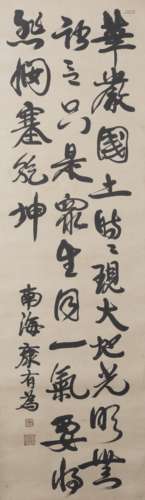 華嚴國土時〻現大地光明無
語言只是眾生同一氣要將
悲憫塞乾坤
南海康有為